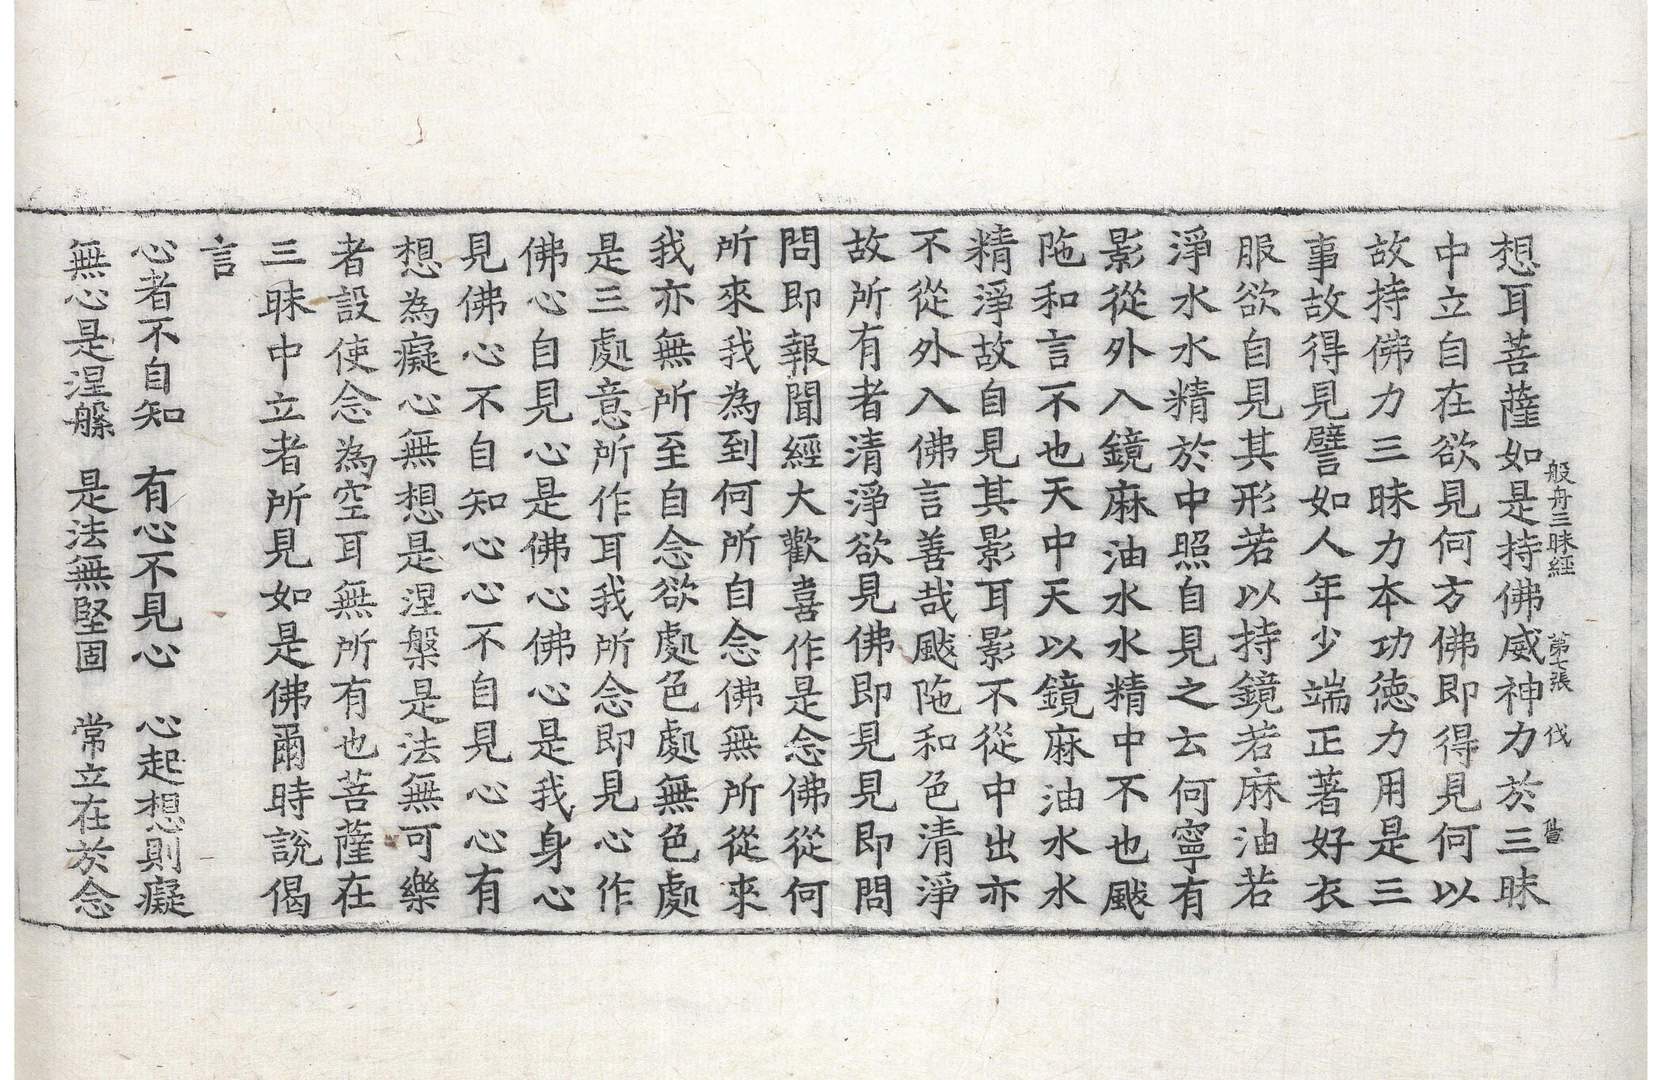 般舟三昧經 第七張 伐
想耳菩薩如是持佛威神力於三昧
中立自在欲見何方佛即得見何以
故持佛力三昧力本功德力用是三
事故得見譬如人年少端正著好衣
服欲自見其形若以持鏡若麻油若
淨水水精於中照自見之云何寧有
影從外入鏡麻油水水精中不也颰
陁和言不也天中天以鏡麻油水水
精淨故自見其影耳影不從中出亦
不從外入佛言善哉颰陁和色清淨
故所有者清淨欲見佛即見見即問
問即報聞經大歡喜作是念佛從何
所來我為到何所自念佛無所從來
我亦無所至自念欲處色處無色處
是三處意所作耳我所念即見心作
佛心自見心是佛心佛心是我身心
見佛心不自知心心不自見心心有
想為癡心無想是涅槃是法無可樂
者設使念為空耳無所有也菩薩在
三昧中立者所見如是佛爾時說偈
言
心者不自知 有心不見心 心起想則癡
無心是涅槃 是法無堅固 常立在於念